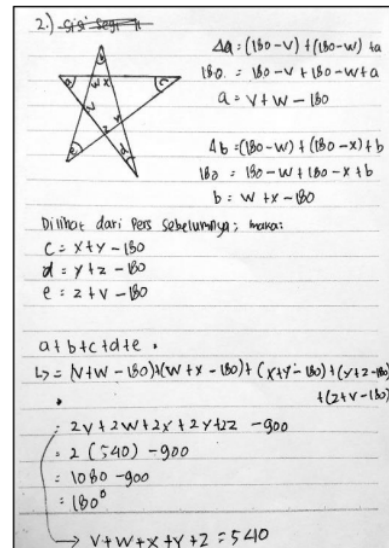 2.) sisi segi
Δa = (180-v) + (180-w) + a
180 = 180-v + 180-w + a
a = v + w - 180
Δb = (180-w) + (180-x) + b
180 = 180-w + 180-x + b
b = w + x - 180
b
a
w x
c
v
y
z
e
d
Dilihat dari Pers sebelumnya; maka:
c = x+y - 180
d = y+z - 180
e = z+v - 180
a+b+c+d+e.
↳ = (v+w - 180) + (w+x - 180) + (x+y - 180) + (y+z - 180)
+(z+v - 180)
= 2v + 2w + 2x + 2y + 2z - 900
= 2 (540) - 900
= 1080 - 900
= 180°
→ v+w+x+y+z = 540